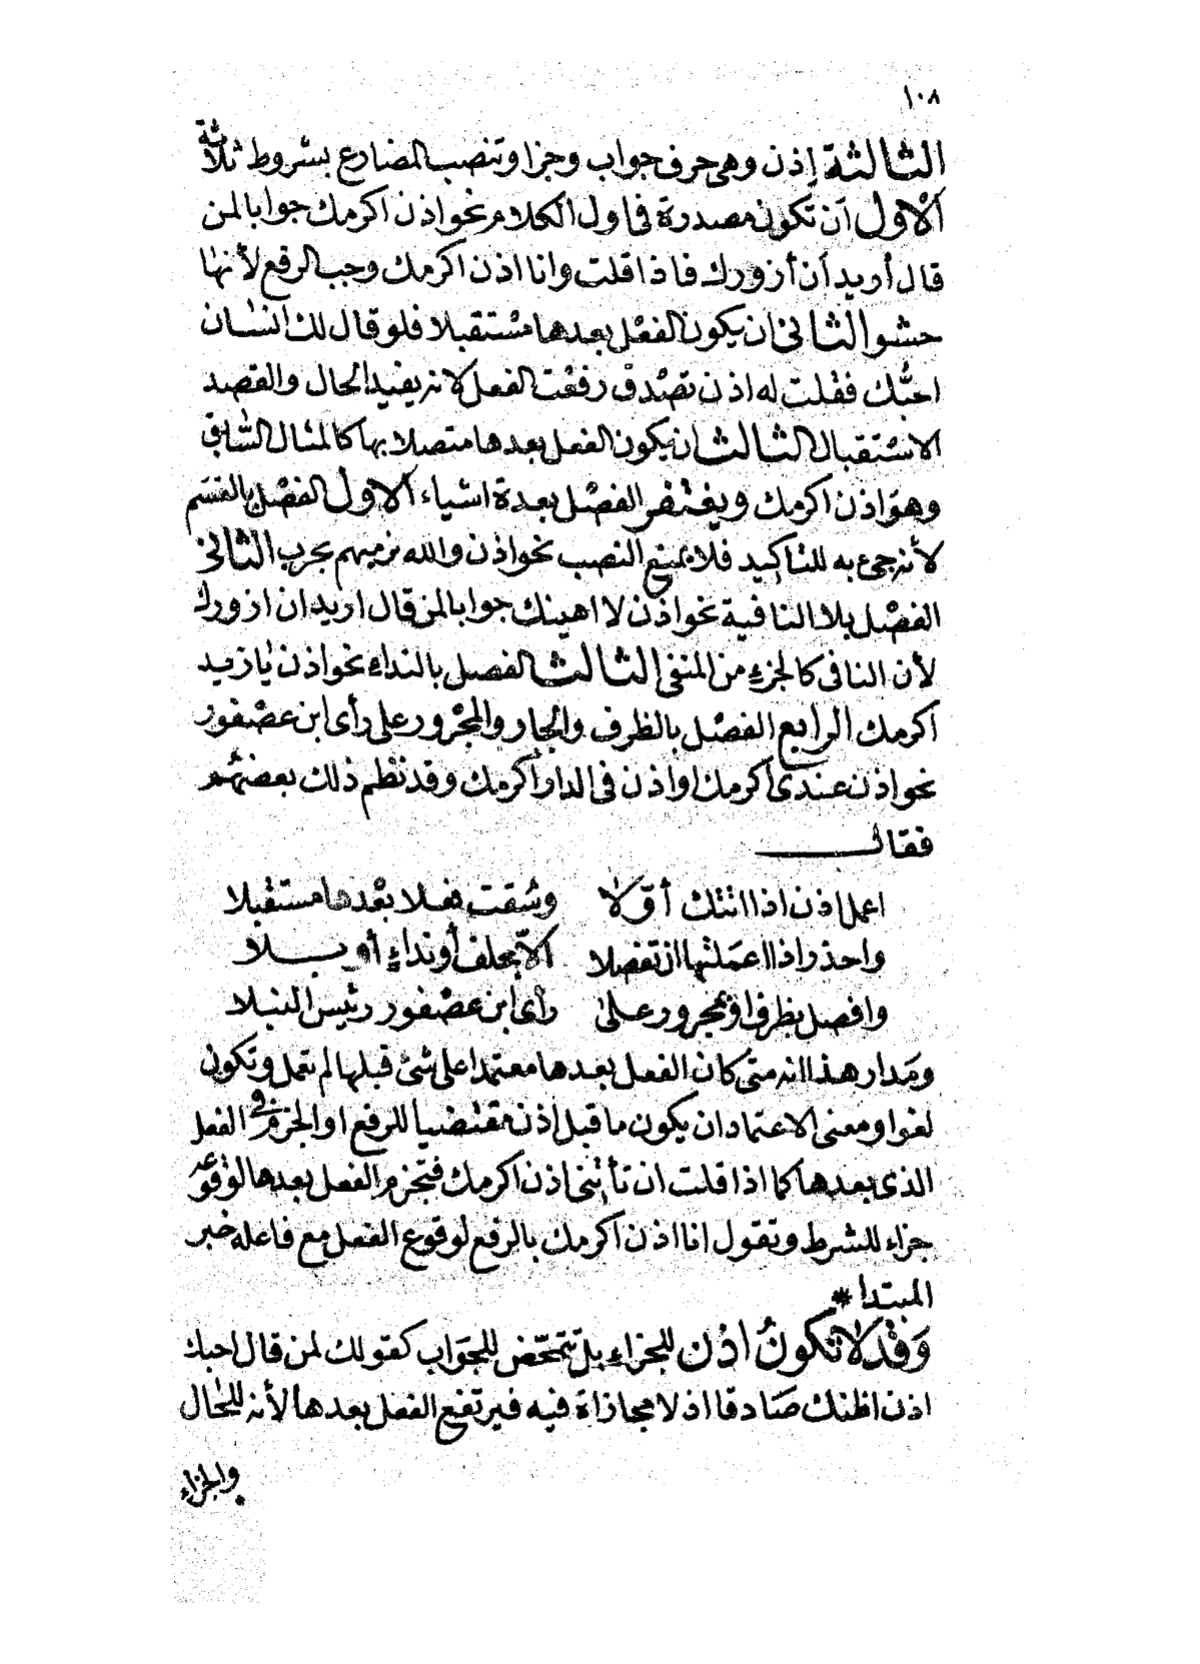 ١٠٨
الثالثة إذن وهى حرف جواب وجزا وتنصب المضارع بشروط ثلاثة
الأول أن تكون مصدرة فى اول الكلام نحو اذن اكرمك جوابا لمن
قال أريد أن أزورك فاذا قلت وانا اذن اكرمك وجب الرفع لأنها
حشو الثانى ان يكون الفعل بعدها مستقبلا فلو قال لك انسان
احبّك فقلت له اذن تصدق رفعت الفعل لانه يفيد الحال والقصد
الاستقبال الثالث ان يكون الفعل بعدها متصلا بها كالمثال السّابق
وهو اذن اكرمك ويغتفر الفصل بعدة اشياء الاول الفصل بالقسم
لأنه جىء به للتاكيد فلا يمنع النصب نحو اذن والله نرميهم بحرب الثانى
الفصل بلا النافية نحو اذن لا اهينك جوابا لمن قال اريد ان ازورك
لأن النافى كالجزء من المنفى الثالث الفصل بالنداء نحو اذن يا زيد
اكرمك الرابع الفصل بالظرف والجار والمجرور على رأى ابن عصفور
نحو اذن عندى أكرمك او اذن فى الدار أكرمك وقد نظم ذلك بعضهم
فقال
اعمل اذن اذا اتتك أوّلا وسقت فعلا بعدها مستقبلا
واحذر اذا اعملتها ان تفصلا الا بحلف أو نداء أو بلا
وافصل بظرف او بمجرور على رأى ابن عصفور رئيس النبلا
ومدار هذا انه متى كان الفعل بعدها معتمدا على شئ قبلها لم تعمل وتكون
لغوا ومعنى الاعتماد ان يكون ما قبل اذن مقتضيا للرفع او الجزم فى الفعل
الذى بعدها كما اذا قلت ان تأتنى اذن اكرمك فتجزم الفعل بعدها لوقوعه
جزاء للشرط وتقول انا اذن اكرمك بالرفع لوقوع الفعل مع فاعله خبر
المبتدا *
وقد لا تكون اذن للجزاء بل تتمحّض للجواب كقولك لمن قال احبك
اذن اظنك صادقا اذ لا مجازاة فيه فيرتفع الفعل بعدها لأنه للحال
والجزاء